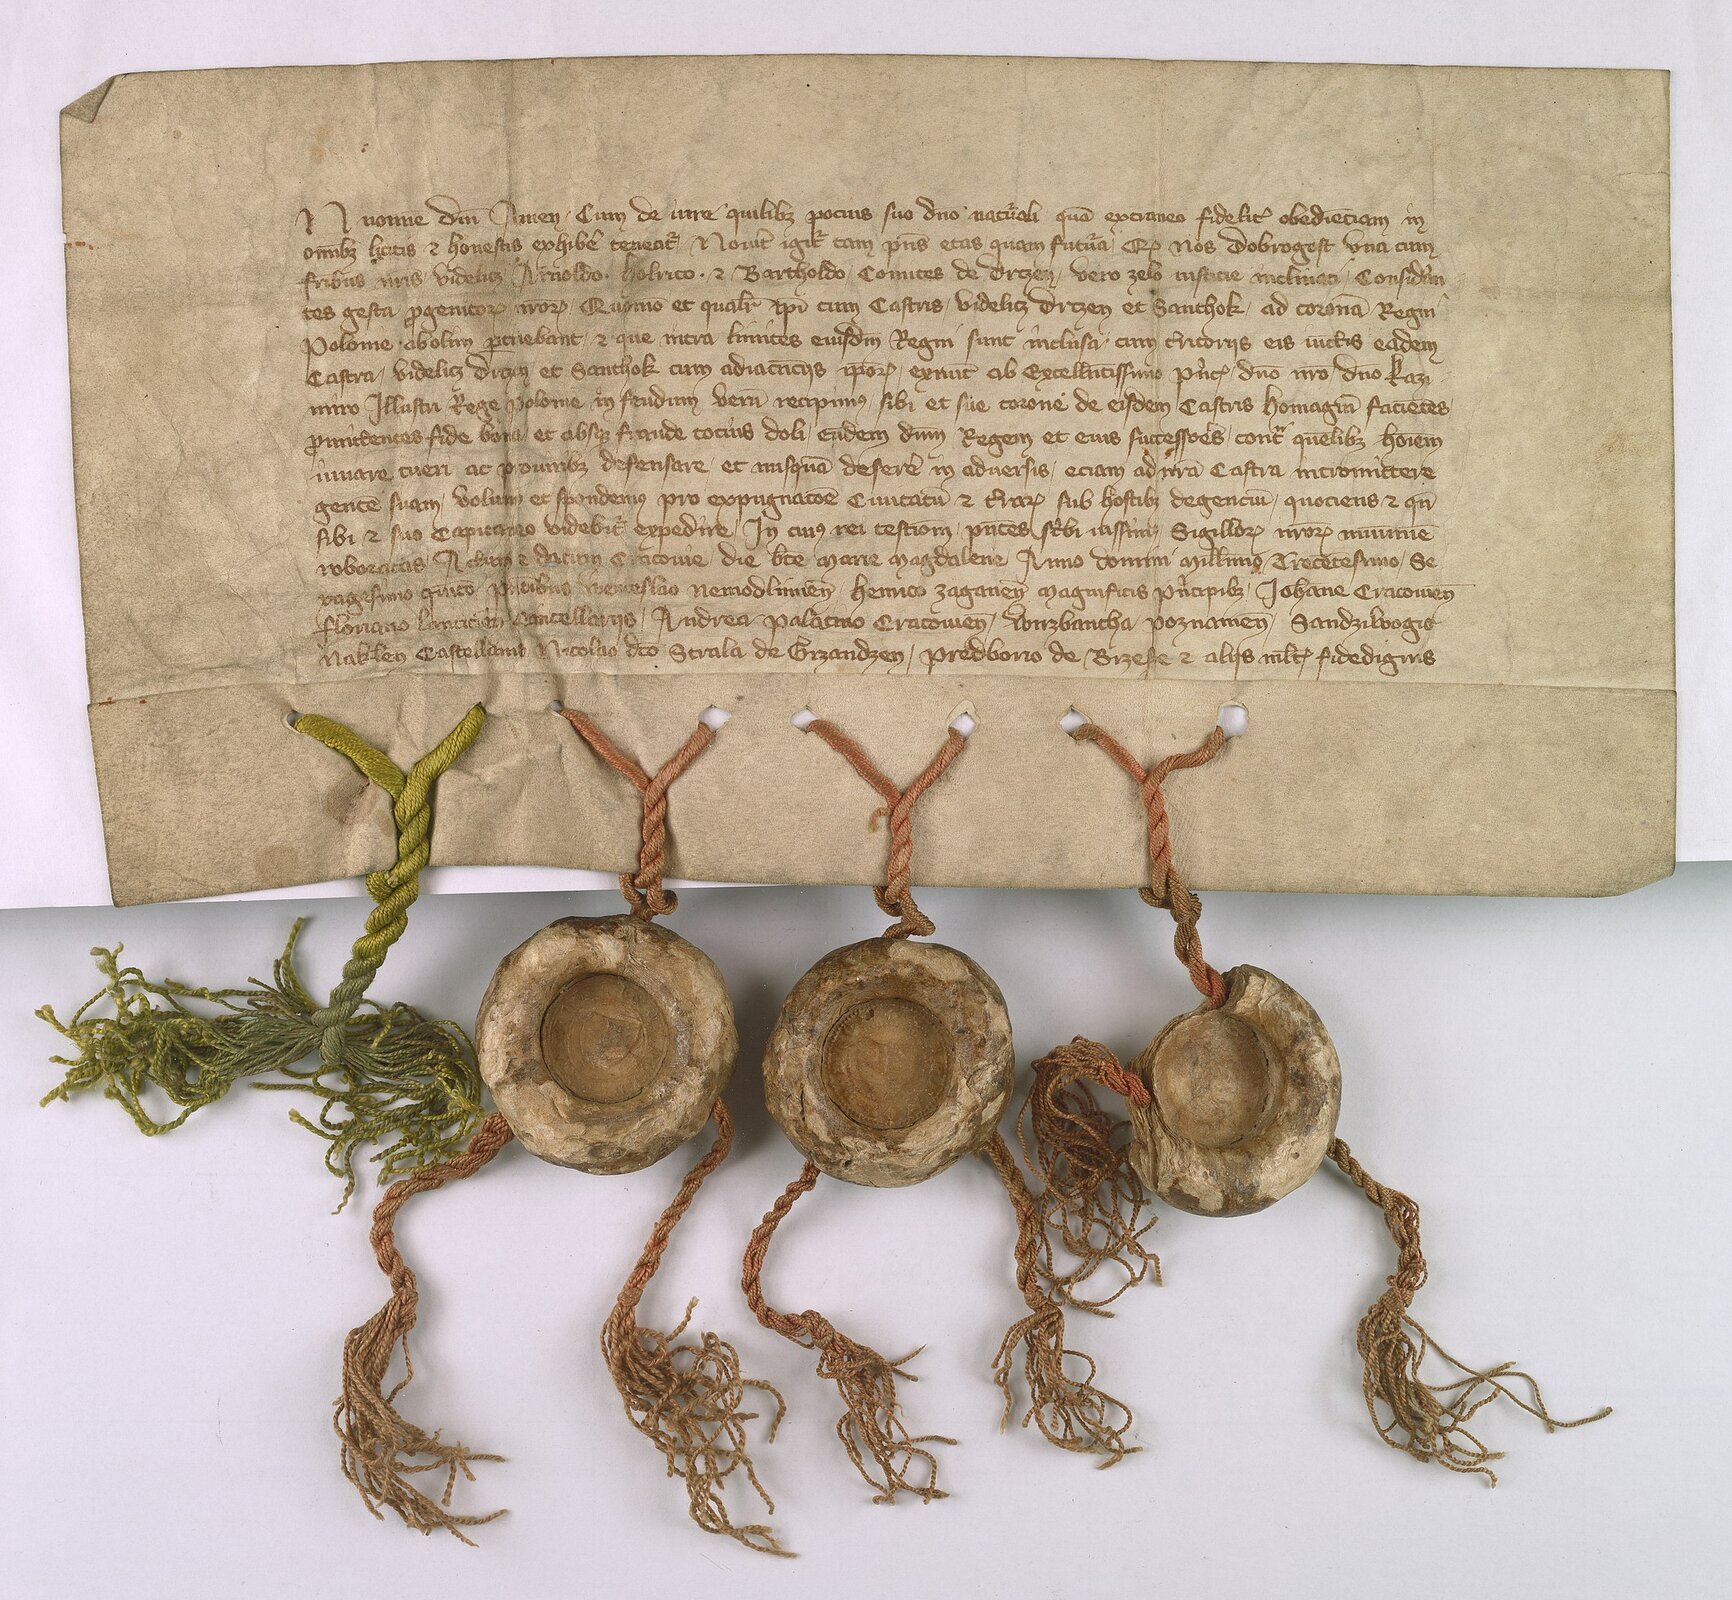 In nomine dni Amen Cum de iure quilibz pocius suo dno naturali qua extraneo fidelit obedienciam in
omibz licitis et honestis exhibere teneatr Noverit igitr tam pns etas quam futura Qd nos Dobrogest una cum
fribus nris videlicz Arnoldo holrico et Bartholdo Comites de Drczen vero zelo iusticie inclinati Consideran
tes gesta progenitor nror Quomo et qualr ipi cum Castris videlicz Drczen et Santhok ad corona Regni
Polonie ab olim ptinebant et que intra limites eiusdm Regni sunt inclusa cum tritorijs eis iunctis eadem
Castra videlicz Drczen et Santhok cum adiacencijs ipor exnunc ab Excellentissimo pncpe dno nro dno Kazi
miro Illustri Rege Polonie in feudum verum recipimus sibi et sue corone de eisdem Castris homagiu facientes
promittentes fide bona et absqz fraude tocius doli eundem dnm Regem et eius successores contra quelibz hoiem
iuvare tueri ac pro viribz defensare et nusqua deserere in adversis eciam ad nra Castra intromittere
gente suam volum et spondemus pro expugnacoe Civitatu et trar sub hostibz degenciu quociens et qn
sibi et suo Capitaneo videbitr expedire In cuius rei testiom pntes scribi iussimus Sigillor nror munimie
roboratas Actum et datum Cracovie die bte Marie Magdalene Anno domini Millimo Trecentesimo Se
xagesimo quinto pntibus Wenceslao nemodlinien henrico zaganen magnificis pncipibz Johanne Cracovien
Floriano lancicien Cancellarijs Andrea palatino Cracovien Wirzbantha poznanien Sandzilvogio
Naklen Castellano Nicolao dco Strala de Grzandzen predborio de Brzesze et alijs mlt fidedignis